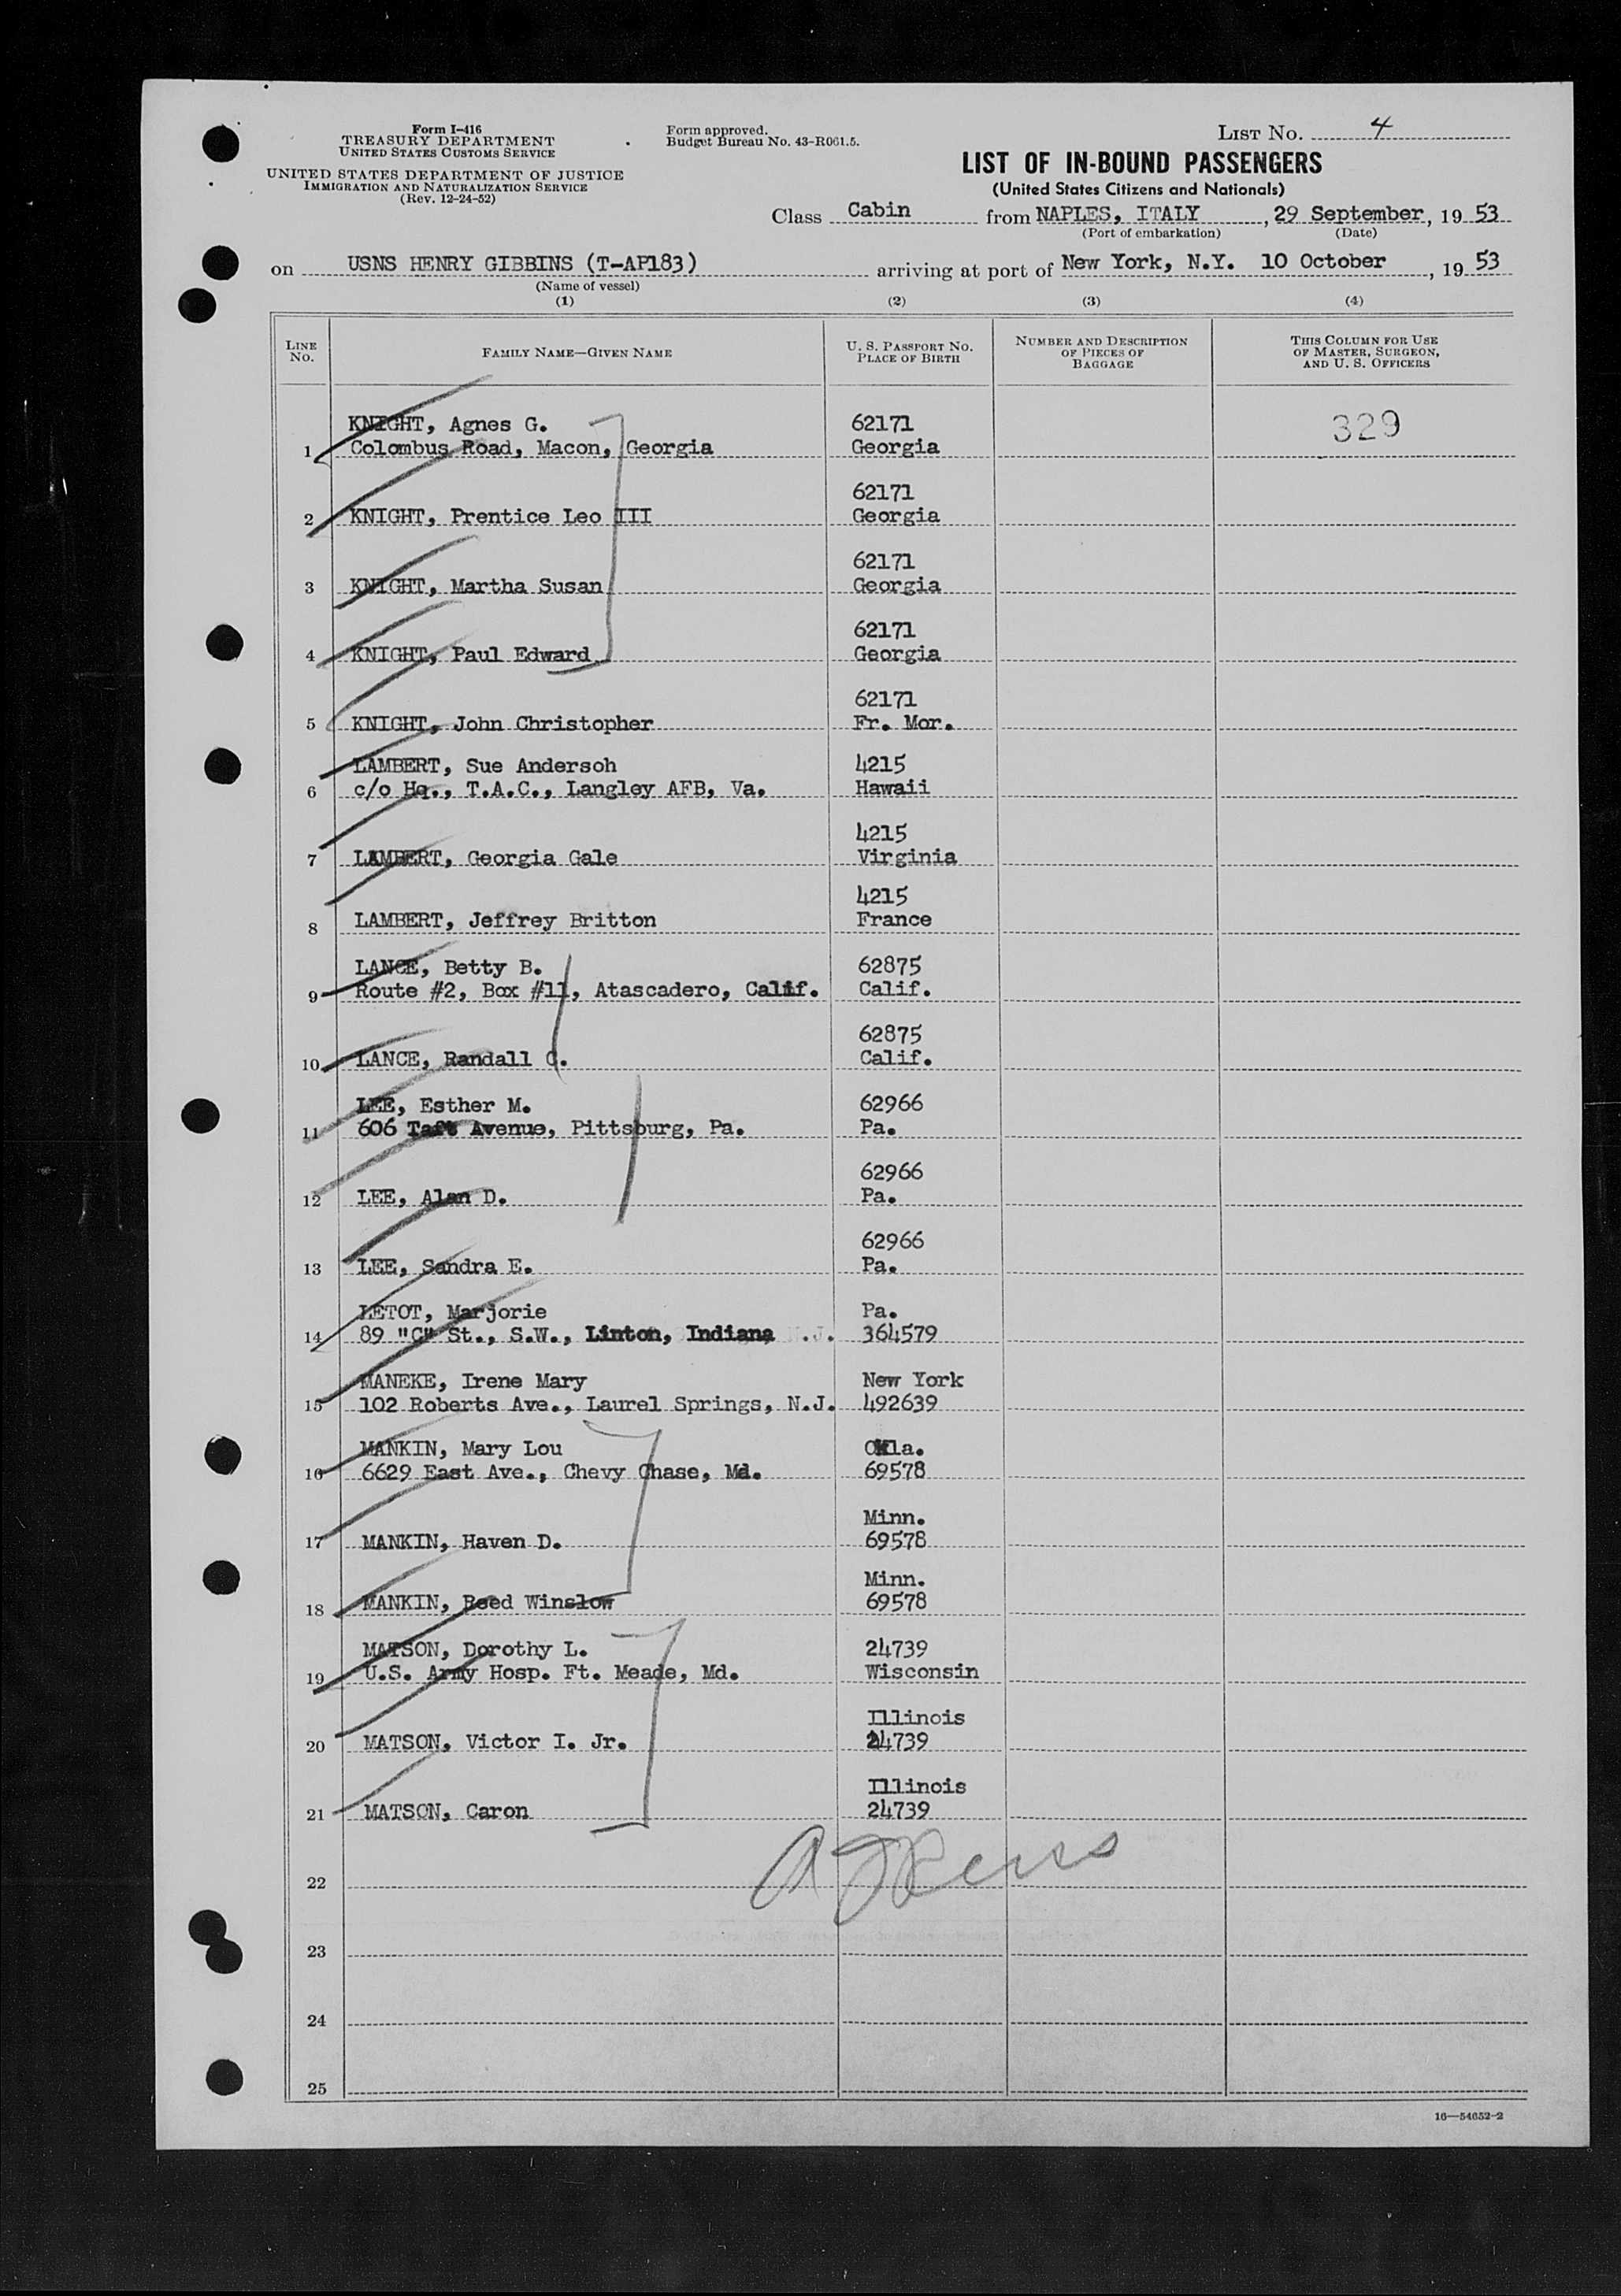 Form I-416
TREASURY DEPARTMENT
UNITED STATES CUSTOMS SERVICE
UNITED STATES DEPARTMENT OF JUSTICE
IMMIGRATION AND NATURALIZATION SERVICE
(Rev. 12-24-52)
Form approved.
Budget Bureau No. 43-R061.5.
LIST NO. 4
LIST OF IN-BOUND PASSENGERS
(United States Citizens and Nationals)
Class Cabin from NAPLES, ITALY, 29 September, 19 53
(Port of embarkation) (Date)
on USNS HENRY GIBBINS (T-AP183) arriving at port of New York, N.Y. 10 October, 19 53
(Name of vessel)
(1) (2) (3) (4)
LINE NO.
FAMILY NAME—GIVEN NAME
U. S. PASSPORT NO.
PLACE OF BIRTH
NUMBER AND DESCRIPTION
OF PIECES OF
BAGGAGE
THIS COLUMN FOR USE
OF MASTER, SURGEON,
AND U. S. OFFICERS
KNIGHT, Agnes G. 62171 329
1 Colombus Road, Macon, Georgia Georgia
62171
2 KNIGHT, Prentice Leo III Georgia
62171
3 KNIGHT, Martha Susan Georgia
62171
4 KNIGHT, Paul Edward Georgia
62171
5 KNIGHT, John Christopher Fr. Mor.
LAMBERT, Sue Andersoh 4215
6 c/o Hq., T.A.C., Langley AFB, Va. Hawaii
4215
7 LAMBERT, Georgia Gale Virginia
4215
8 LAMBERT, Jeffrey Britton France
LANCE, Betty B. 62875
9 Route #2, Box #11, Atascadero, Calif. Calif.
62875
10 LANCE, Randall C. Calif.
LEE, Esther M. 62966
11 606 Taft Avenue, Pittsburg, Pa. Pa.
62966
12 LEE, Alan D. Pa.
62966
13 LEE, Sandra E. Pa.
LETOT, Marjorie Pa.
14 89 "C" St., S.W., Linton, Indiana 364579
MANEKE, Irene Mary New York
15 102 Roberts Ave., Laurel Springs, N.J. 492639
MANKIN, Mary Lou Okla.
16 6629 East Ave., Chevy Chase, Md. 69578
Minn.
17 MANKIN, Haven D. 69578
Minn.
18 MANKIN, Reed Winslow 69578
MATSON, Dorothy L. 24739
19 U.S. Army Hosp. Ft. Meade, Md. Wisconsin
Illinois
20 MATSON, Victor I. Jr. 24739
Illinois
21 MATSON, Caron 24739
22
23
24
25
16—54652-2